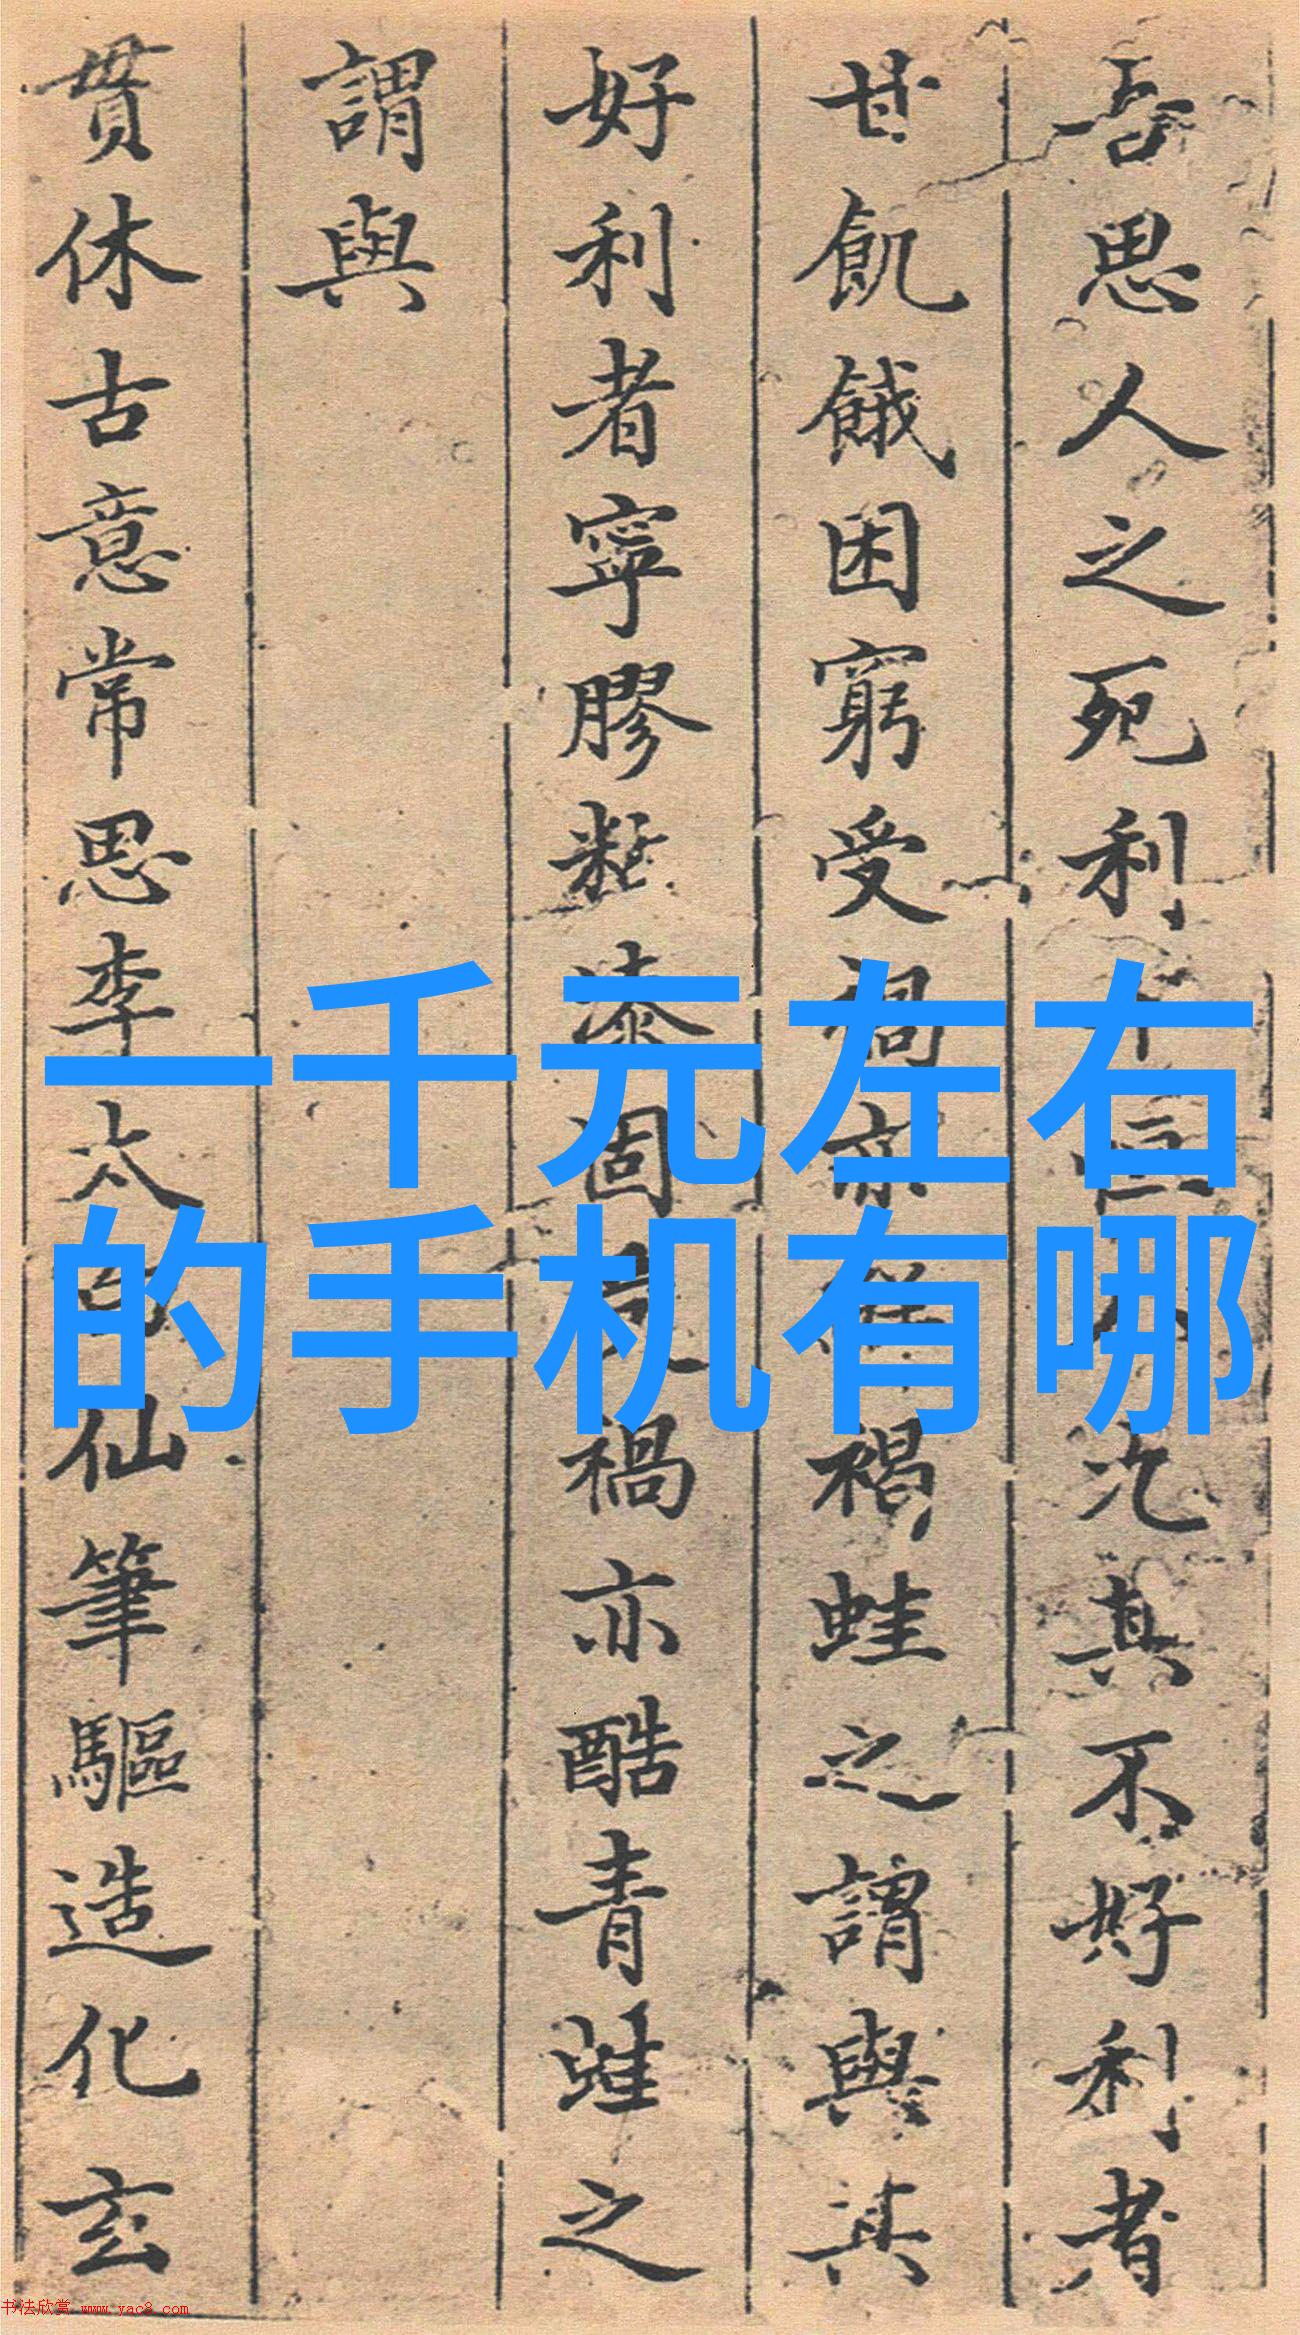 吾思人之死利其不好利者
甘飢餓困窮受亦褐蛙之謂與其
好利者寧膠黏漆固禍亦酷青蛙之
謂與
貫休古意常思李太白仙筆驅造化玄
一千元左右
的手机有哪
书法欣赏 www.yac8.com